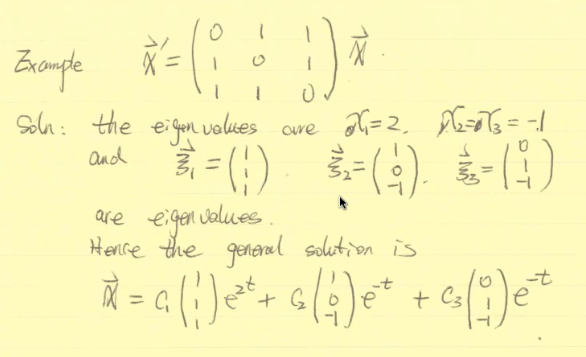 Example $\vec{x}' = \begin{pmatrix} 0 & 1 & 1 \\ 1 & 0 & 1 \\ 1 & 1 & 0 \end{pmatrix} \vec{x}$.
Soln: the eigenvalues are $r_1 = 2$, $r_2 = r_3 = -1$
and $\vec{\xi}_1 = \begin{pmatrix} 1 \\ 1 \\ 1 \end{pmatrix}$. $\vec{\xi}_2 = \begin{pmatrix} 1 \\ 0 \\ -1 \end{pmatrix}$. $\vec{\xi}_3 = \begin{pmatrix} 0 \\ 1 \\ -1 \end{pmatrix}$
are eigenvalues.
Hence the general solution is
$\vec{x} = c_1 \begin{pmatrix} 1 \\ 1 \\ 1 \end{pmatrix} e^{2t} + c_2 \begin{pmatrix} 1 \\ 0 \\ -1 \end{pmatrix} e^{-t} + c_3 \begin{pmatrix} 0 \\ 1 \\ -1 \end{pmatrix} e^{-t}$.